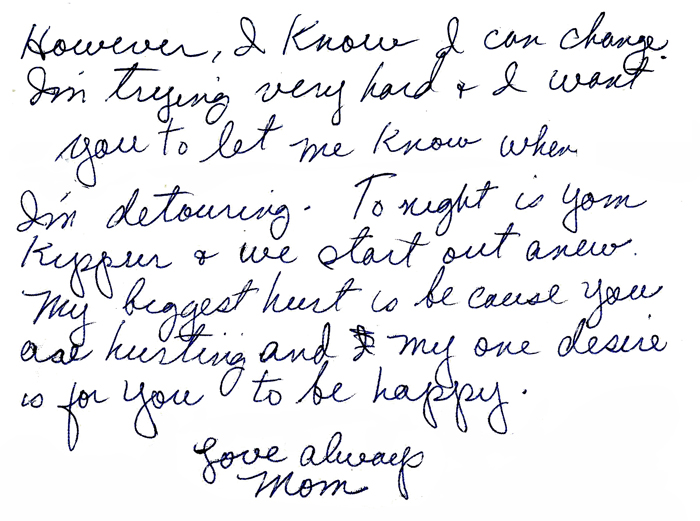 However, I Know I can change.
I'm trying very hard & I want
you to let me Know when
I'm detouring. Tonight is Yom
Kippur & we start out anew.
My biggest hurt is because you
are hurting and my one desire
is for you to be happy.
Love always
Mom